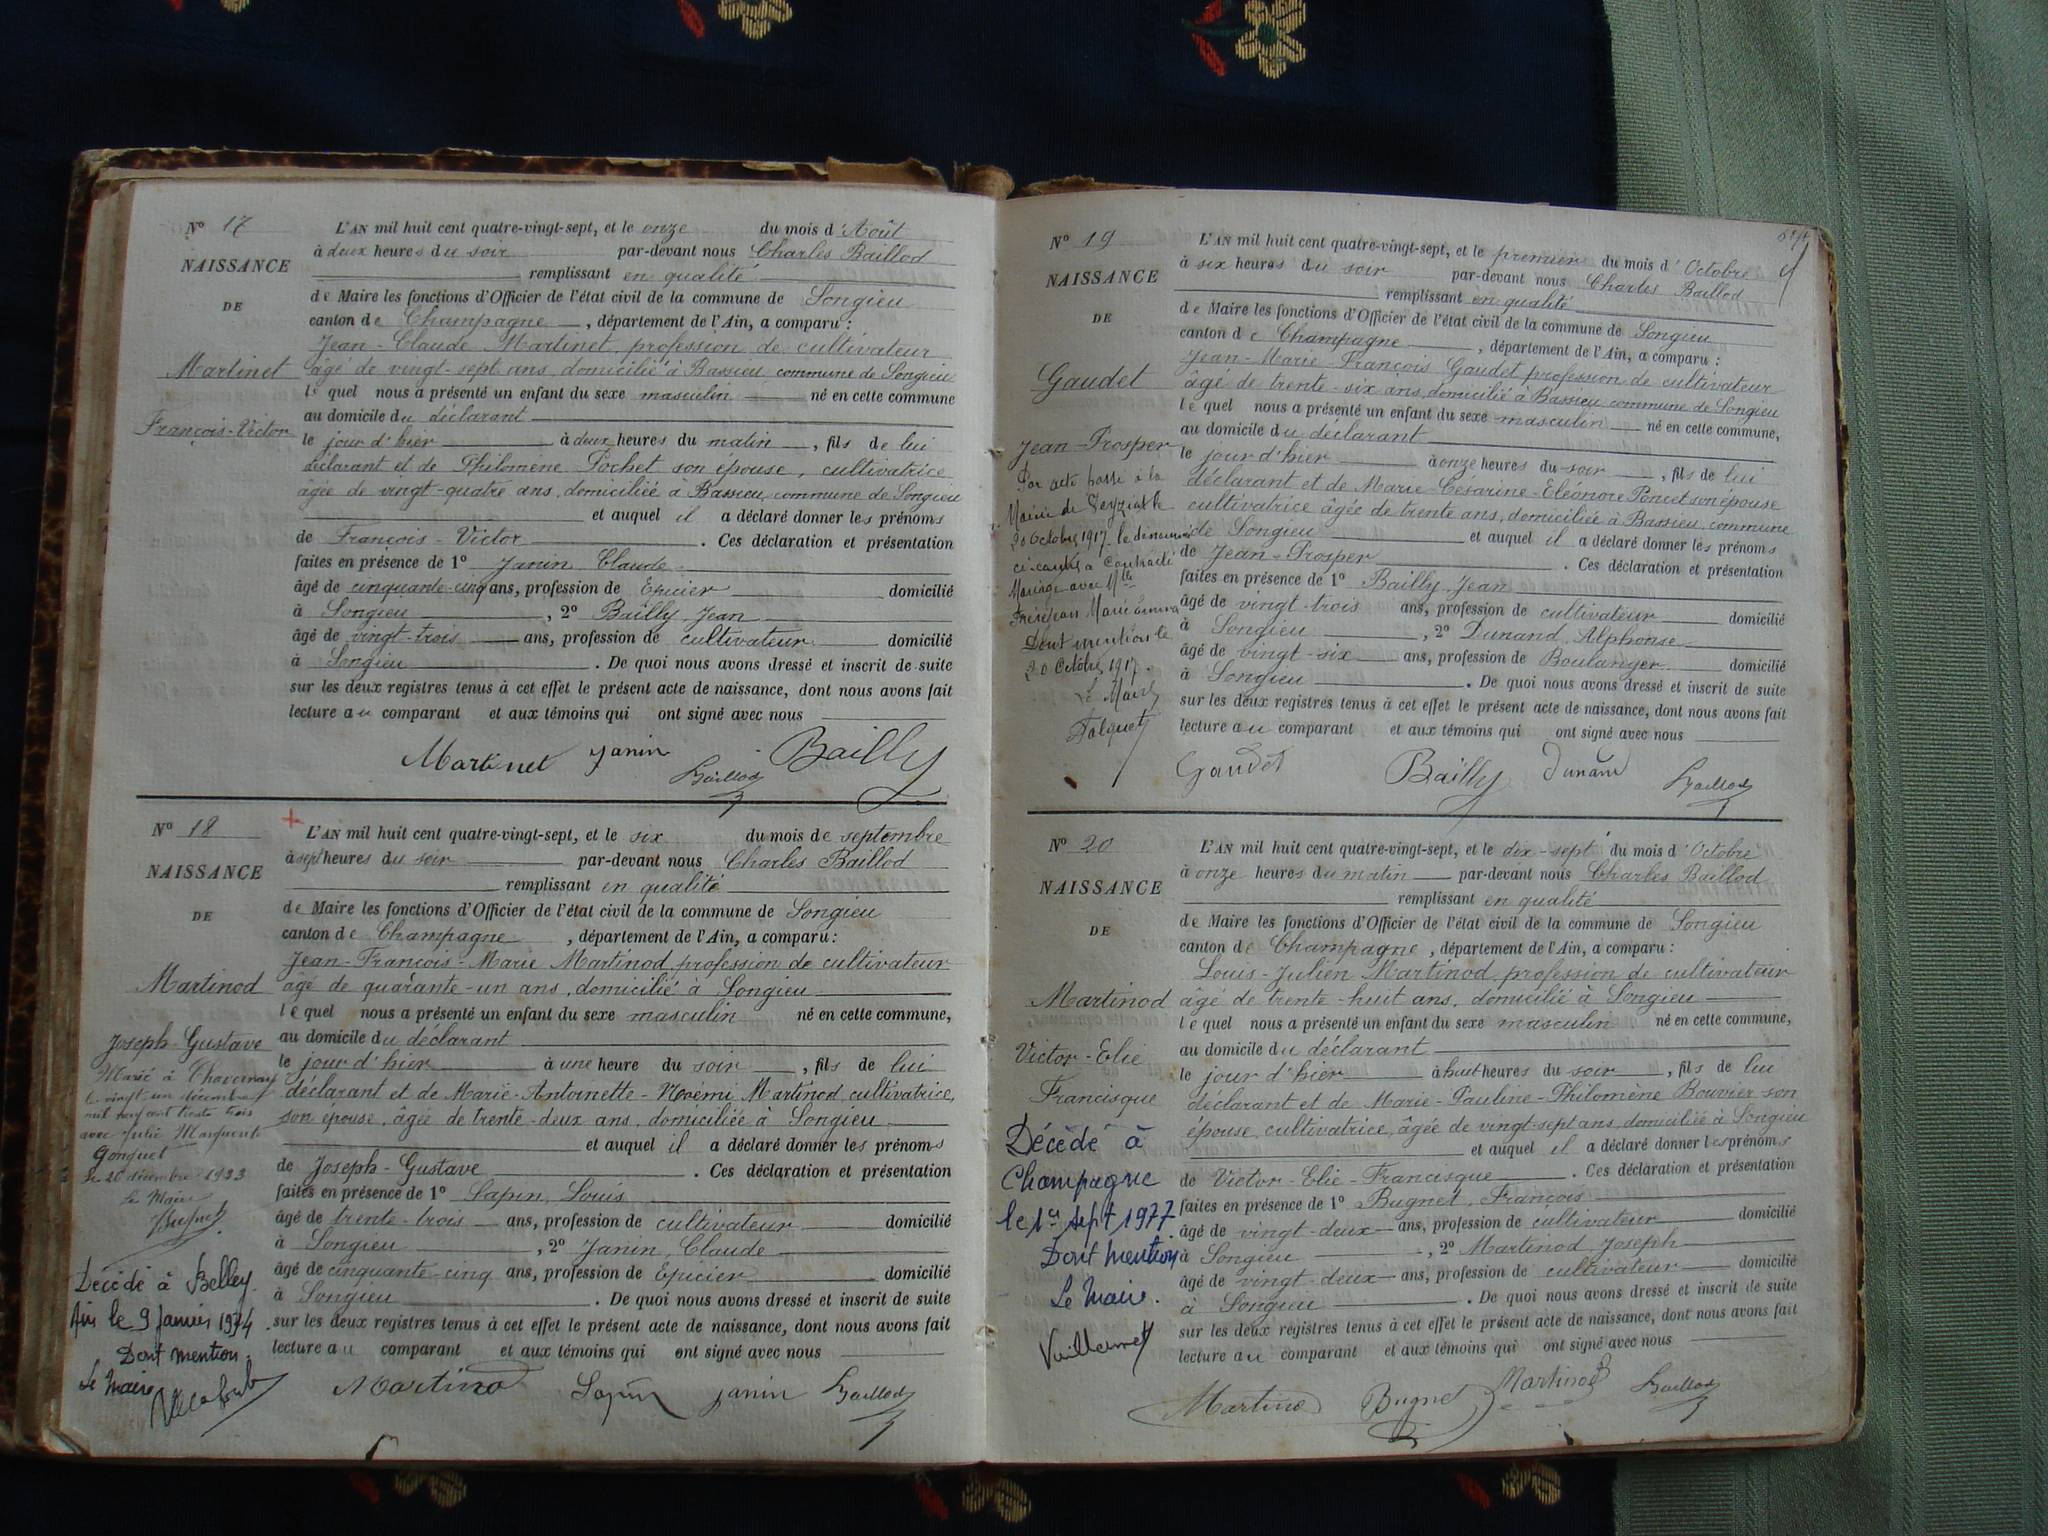 N° 17
NAISSANCE
DE
Martinet
François-Victor
L'AN mil huit cent quatre-vingt-sept, et le onze du mois d'Août
à deux heures du soir par-devant nous Charles Baillod
remplissant en qualité
de Maire les fonctions d'Officier de l'état civil de la commune de Songieu
canton de Champagne, département de l'Ain, a comparu :
Jean-Claude Martinet, profession de cultivateur
âgé de vingt-sept ans, domicilié à Bassieu, commune de Songieu
lequel nous a présenté un enfant du sexe masculin né en cette commune
au domicile du déclarant
le jour d'hier à deux heures du matin, fils de lui
déclarant et de Philomène Pochet son épouse, cultivatrice
âgée de vingt-quatre ans, domiciliée à Bassieu, commune de Songieu
et auquel il a déclaré donner les prénoms
de François-Victor. Ces déclaration et présentation
faites en présence de 1° Janin, Claude
âgé de cinquante-cinq ans, profession de Epicier domicilié
à Songieu, 2° Bailly, Jean
âgé de vingt-trois ans, profession de cultivateur domicilié
à Songieu. De quoi nous avons dressé et inscrit de suite
sur les deux registres tenus à cet effet le présent acte de naissance, dont nous avons fait
lecture au comparant et aux témoins qui ont signé avec nous
Martinet Janin Baillod Bailly
N° 18
NAISSANCE
DE
Martinod
Joseph-Gustave
Marié à Chavornay
le vingt un décembre
mil neuf cent trente trois
avec Julie Marguerite
Gonguet
Le 26 décembre 1933
Le Maire
Décédé à Belley
Ain le 9 Janvier 1974
Dont mention.
Le Maire
+
L'AN mil huit cent quatre-vingt-sept, et le six du mois de septembre
à sept heures du soir par-devant nous Charles Baillod
remplissant en qualité
de Maire les fonctions d'Officier de l'état civil de la commune de Songieu
canton de Champagne, département de l'Ain, a comparu :
Jean-François-Marie Martinod, profession de cultivateur
âgé de quarante-un ans, domicilié à Songieu
lequel nous a présenté un enfant du sexe masculin né en cette commune,
au domicile du déclarant
le jour d'hier à une heure du soir, fils de lui
déclarant et de Marie-Antoinette-Noémi Martinod, cultivatrice,
son épouse, âgée de trente-deux ans, domiciliée à Songieu
et auquel il a déclaré donner les prénoms
de Joseph-Gustave. Ces déclaration et présentation
faites en présence de 1° Lapin, Louis
âgé de trente-trois ans, profession de cultivateur domicilié
à Songieu, 2° Janin, Claude
âgé de cinquante-cinq ans, profession de Epicier domicilié
à Songieu. De quoi nous avons dressé et inscrit de suite
sur les deux registres tenus à cet effet le présent acte de naissance, dont nous avons fait
lecture au comparant et aux témoins qui ont signé avec nous
Martinod Lapin Janin Baillod
N° 19
NAISSANCE
DE
Gaudet
Jean-Prosper
Par acte passé à la
Mairie de Veyziat le
20 Octobre 1917 le dénommé
ci-contre a Contracté
Mariage avec Mlle
Frérejean
Dont mention le
20 Octobre 1917.
Le Maire
Falquet
L'AN mil huit cent quatre-vingt-sept, et le premier du mois d'Octobre
à six heures du soir par-devant nous Charles Baillod
remplissant en qualité
de Maire les fonctions d'Officier de l'état civil de la commune de Songieu
canton de Champagne, département de l'Ain, a comparu :
Jean-Marie-François Gaudet, profession de cultivateur
âgé de trente-six ans, domicilié à Bassieu, commune de Songieu
lequel nous a présenté un enfant du sexe masculin né en cette commune,
au domicile du déclarant
le jour d'hier à onze heures du soir, fils de lui
déclarant et de Marie-Césarine-Eléonore Poncet son épouse
cultivatrice âgée de trente ans, domiciliée à Bassieu, commune
de Songieu et auquel il a déclaré donner les prénoms
de Jean-Prosper. Ces déclaration et présentation
faites en présence de 1° Bailly, Jean
âgé de vingt-trois ans, profession de cultivateur domicilié
à Songieu, 2° Dunand, Alphonse
âgé de vingt-six ans, profession de Boulanger domicilié
à Songieu. De quoi nous avons dressé et inscrit de suite
sur les deux registres tenus à cet effet le présent acte de naissance, dont nous avons fait
lecture au comparant et aux témoins qui ont signé avec nous
Gaudet Bailly Dunand Baillod
N° 20
NAISSANCE
DE
Martinod
Victor-Elie
Francisque
Décédé à
Champagne
le 1er Sept 1977.
Dont mention
Le Maire.
L'AN mil huit cent quatre-vingt-sept, et le dix-sept du mois d'Octobre
à onze heures du matin par-devant nous Charles Baillod
remplissant en qualité
de Maire les fonctions d'Officier de l'état civil de la commune de Songieu
canton de Champagne, département de l'Ain, a comparu :
Louis-Julien Martinod, profession de cultivateur
âgé de trente-huit ans, domicilié à Songieu
lequel nous a présenté un enfant du sexe masculin né en cette commune,
au domicile du déclarant
le jour d'hier à huit heures du soir, fils de lui
déclarant et de Marie-Pauline-Philomène Bouvier son
épouse, cultivatrice, âgée de vingt-sept ans, domiciliée à Songieu
et auquel il a déclaré donner les prénoms
de Victor-Elie-Francisque. Ces déclaration et présentation
faites en présence de 1° Bugnet, François
âgé de vingt-deux ans, profession de cultivateur domicilié
à Songieu, 2° Martinod Joseph
âgé de vingt-deux ans, profession de cultivateur domicilié
à Songieu. De quoi nous avons dressé et inscrit de suite
sur les deux registres tenus à cet effet le présent acte de naissance, dont nous avons fait
lecture au comparant et aux témoins qui ont signé avec nous
Martinod Bugnet Martinod Baillod